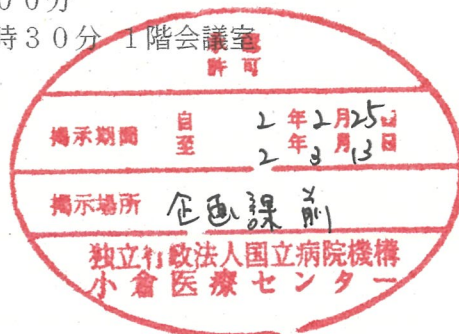 ００分
時３０分 １階会議室
許可
掲示期間 自 2年2月25日
至 2年3月13日
掲示場所 企画課前
独立行政法人国立病院機構
小倉医療センター